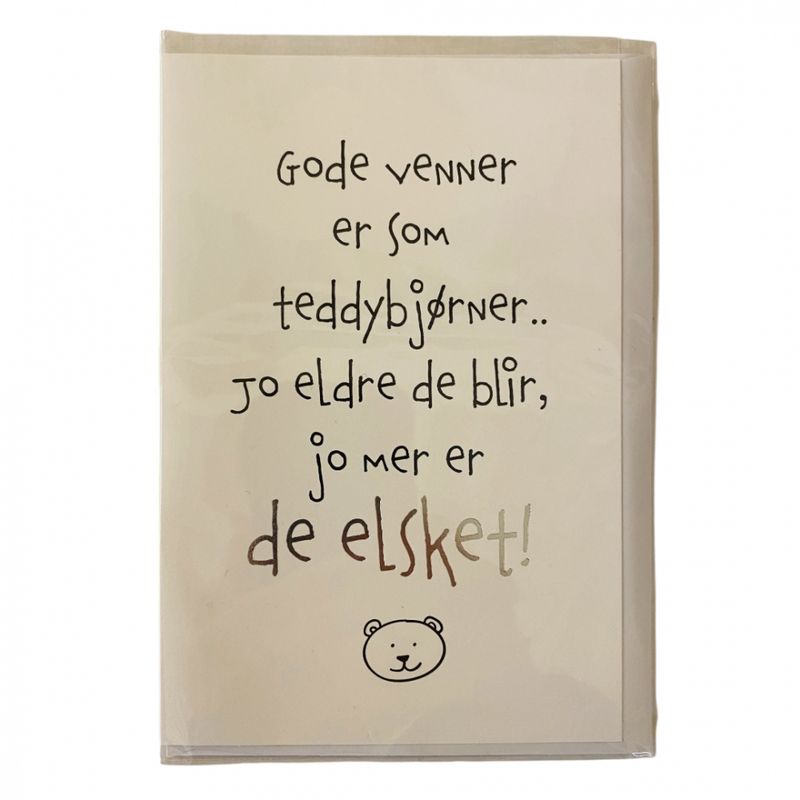 Gode venner
er som
teddybjørner..
Jo eldre de blir,
jo mer er
de elsket!